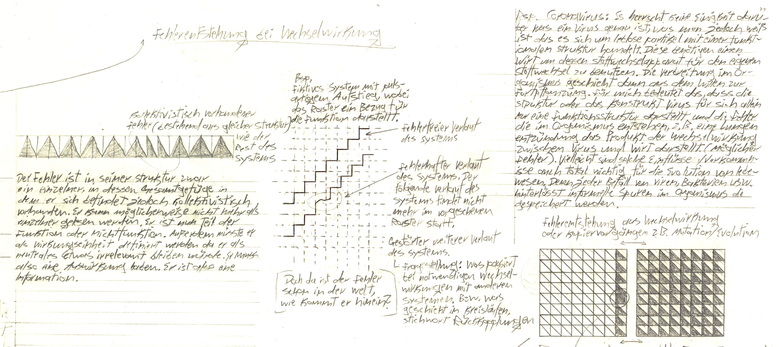 Fehlerentstehung bei Wechselwirkung
kollektivistisch verbundener
Fehler bestehend aus gleicher Struktur
wie der
Rest des
Systems
Der Fehler ist in seiner Struktur zwar
ein einzelner in dessen Gesamtgefüge in
dem er sich befindet jedoch kollektivistisch
vorhanden. Er kann möglicherweise nicht mehr als
einzelner gesehen werden. Er ist nun Teil der
Funktion oder Nichtfunktion. Außerdem müsste er
als Wirkungseinheit definiert werden da er als
neutrales Etwas irrelevant bleiben würde. Er muss
also eine Auswirkung haben. Er ist also eine
Information.
Bsp.
fiktives System mit
Aufstieg, wobei
das Raster ein Bezug für
die Funktion darstellt.
fehlerfreier Verlauf
des Systems
fehlerhafter Verlauf
des Systems. Der
folgende Verlauf des
Systems findet nicht
mehr im vorgesehenen
Raster statt.
Gestörter weiterer Verlauf
des Systems.
Fragestellung: Was passiert
bei notwendigen Wechsel-
wirkungen mit anderen
Systemen, Bzw. was
geschieht in Kreisläufen,
Stichwort Rückkopplungen
Doch da ist der Fehler
schon in der Welt,
wie kommt er hinein?
Bsp. Coronavirus: Es herrscht keine Einigkeit darü-
ber was ein Virus genau ist, was man jedoch weiß
ist das es sich um leblose Partikel mit einer funkt-
ionalen Struktur handelt. Diese benötigen einen
Wirt um dessen Stoffwechselapparat für den eigenen
Stoffwechsel zu benutzen. Die Verbreitung im Or-
ganismus geschieht dann aus dem Willen zur
Fortpflanzung. Für mich bedeutet das, dass die
Struktur oder das Konstrukt Virus für sich allein
nur eine Funktionsstruktur darstellt und die Fehler
die im Organismus entstehen, z.B. eine Lungen
entzündung, das Produkt der Wechselwirkung
zwischen Virus und Wirt darstellt (möglicher
Fehler). Vielleicht sind solche Einflüsse /
auch total wichtig für die Evolution von Lebe-
wesen. Denn jeder Befall von Viren Bakterien usw.
hinterlässt informelle Spuren im Organismus die
gespeichert werden.
Fehlerentstehung aus Wechselwirkung
oder Kopiervorgängen z.B. Mutation/Evolution